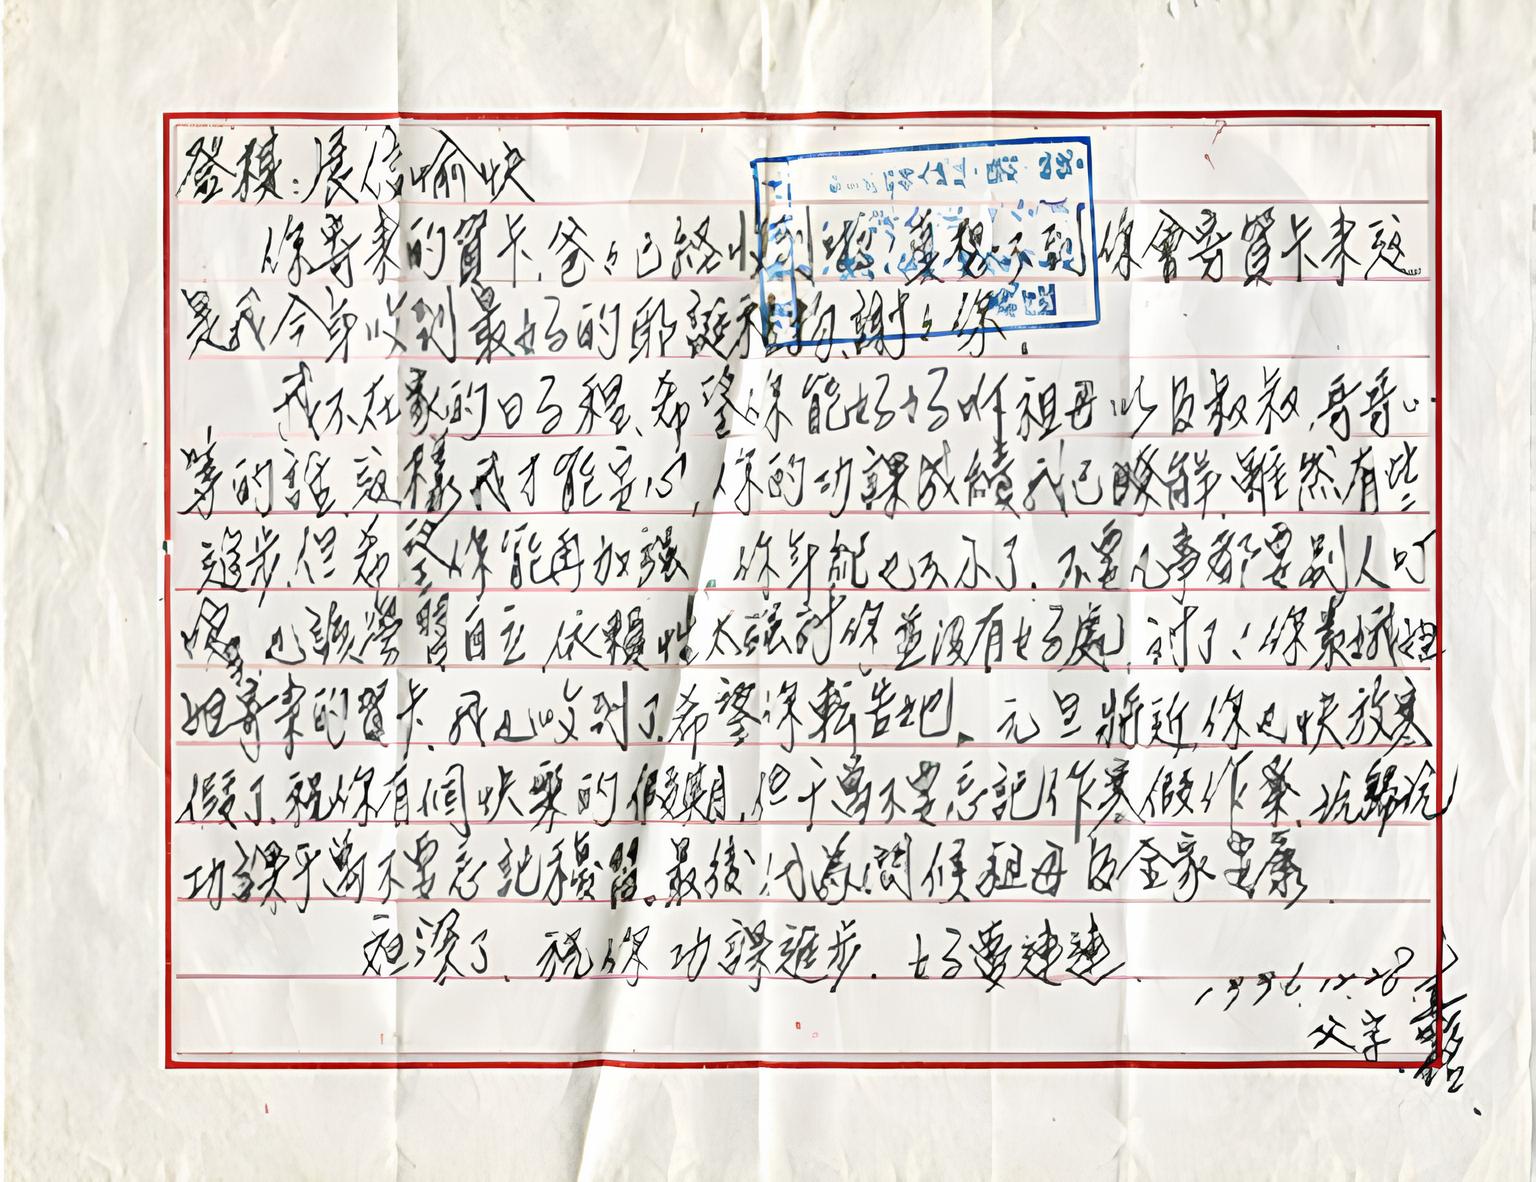 登積：展信愉快
你寄來的賀卡，爸爸已經收到，萬想不到你會寄賀卡來，這
是我今年收到最好的耶誕禮物，謝謝你．
我不在家的日子裡，希望你能好好聽祖母以及叔叔，哥哥
等的話，這樣我才能安心，你的功課成績我已瞭解，雖然有些
進步，但希望你能再加強．你年紀也不小了．不要凡事都要別人叮
嚀，也該學習自立，依賴性太強對你並沒有好處，對了！你
姐寄來的賀卡，我也收到了，希望你轉告她．元旦將近，你也快放寒
假了，祝你有個快樂的假期，但千萬不要忘記作寒假作業，玩歸玩
功課千萬不要忘記複習．最後！代為問候祖母及全家安康．
夜深了．祝你功課進步．好夢連連．
1996.12.28
父字．